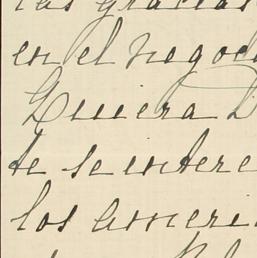 las gracias
en el negoci
Quiera D
te se intere
los ameri